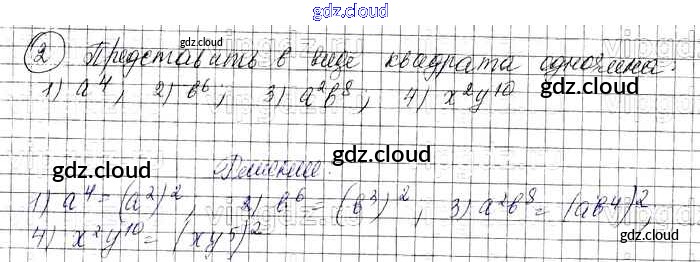 gdz.cloud
② Представить в виде квадрата одночлена:
gdz.cloud
1) a⁴, 2) b⁶; 3) a²b⁸; 4) x²y¹⁰
gdz.cloud gdz.cloud gdz.cloud
gdz.cloud
Решение:
gdz.cloud gdz.cloud
1) a⁴ = (a²)², 2) b⁶ = (b³)²; 3) a²b⁸ = (ab⁴)²,
4) x²y¹⁰ = (xy⁵)²
gdz.cloud gdz.cloud